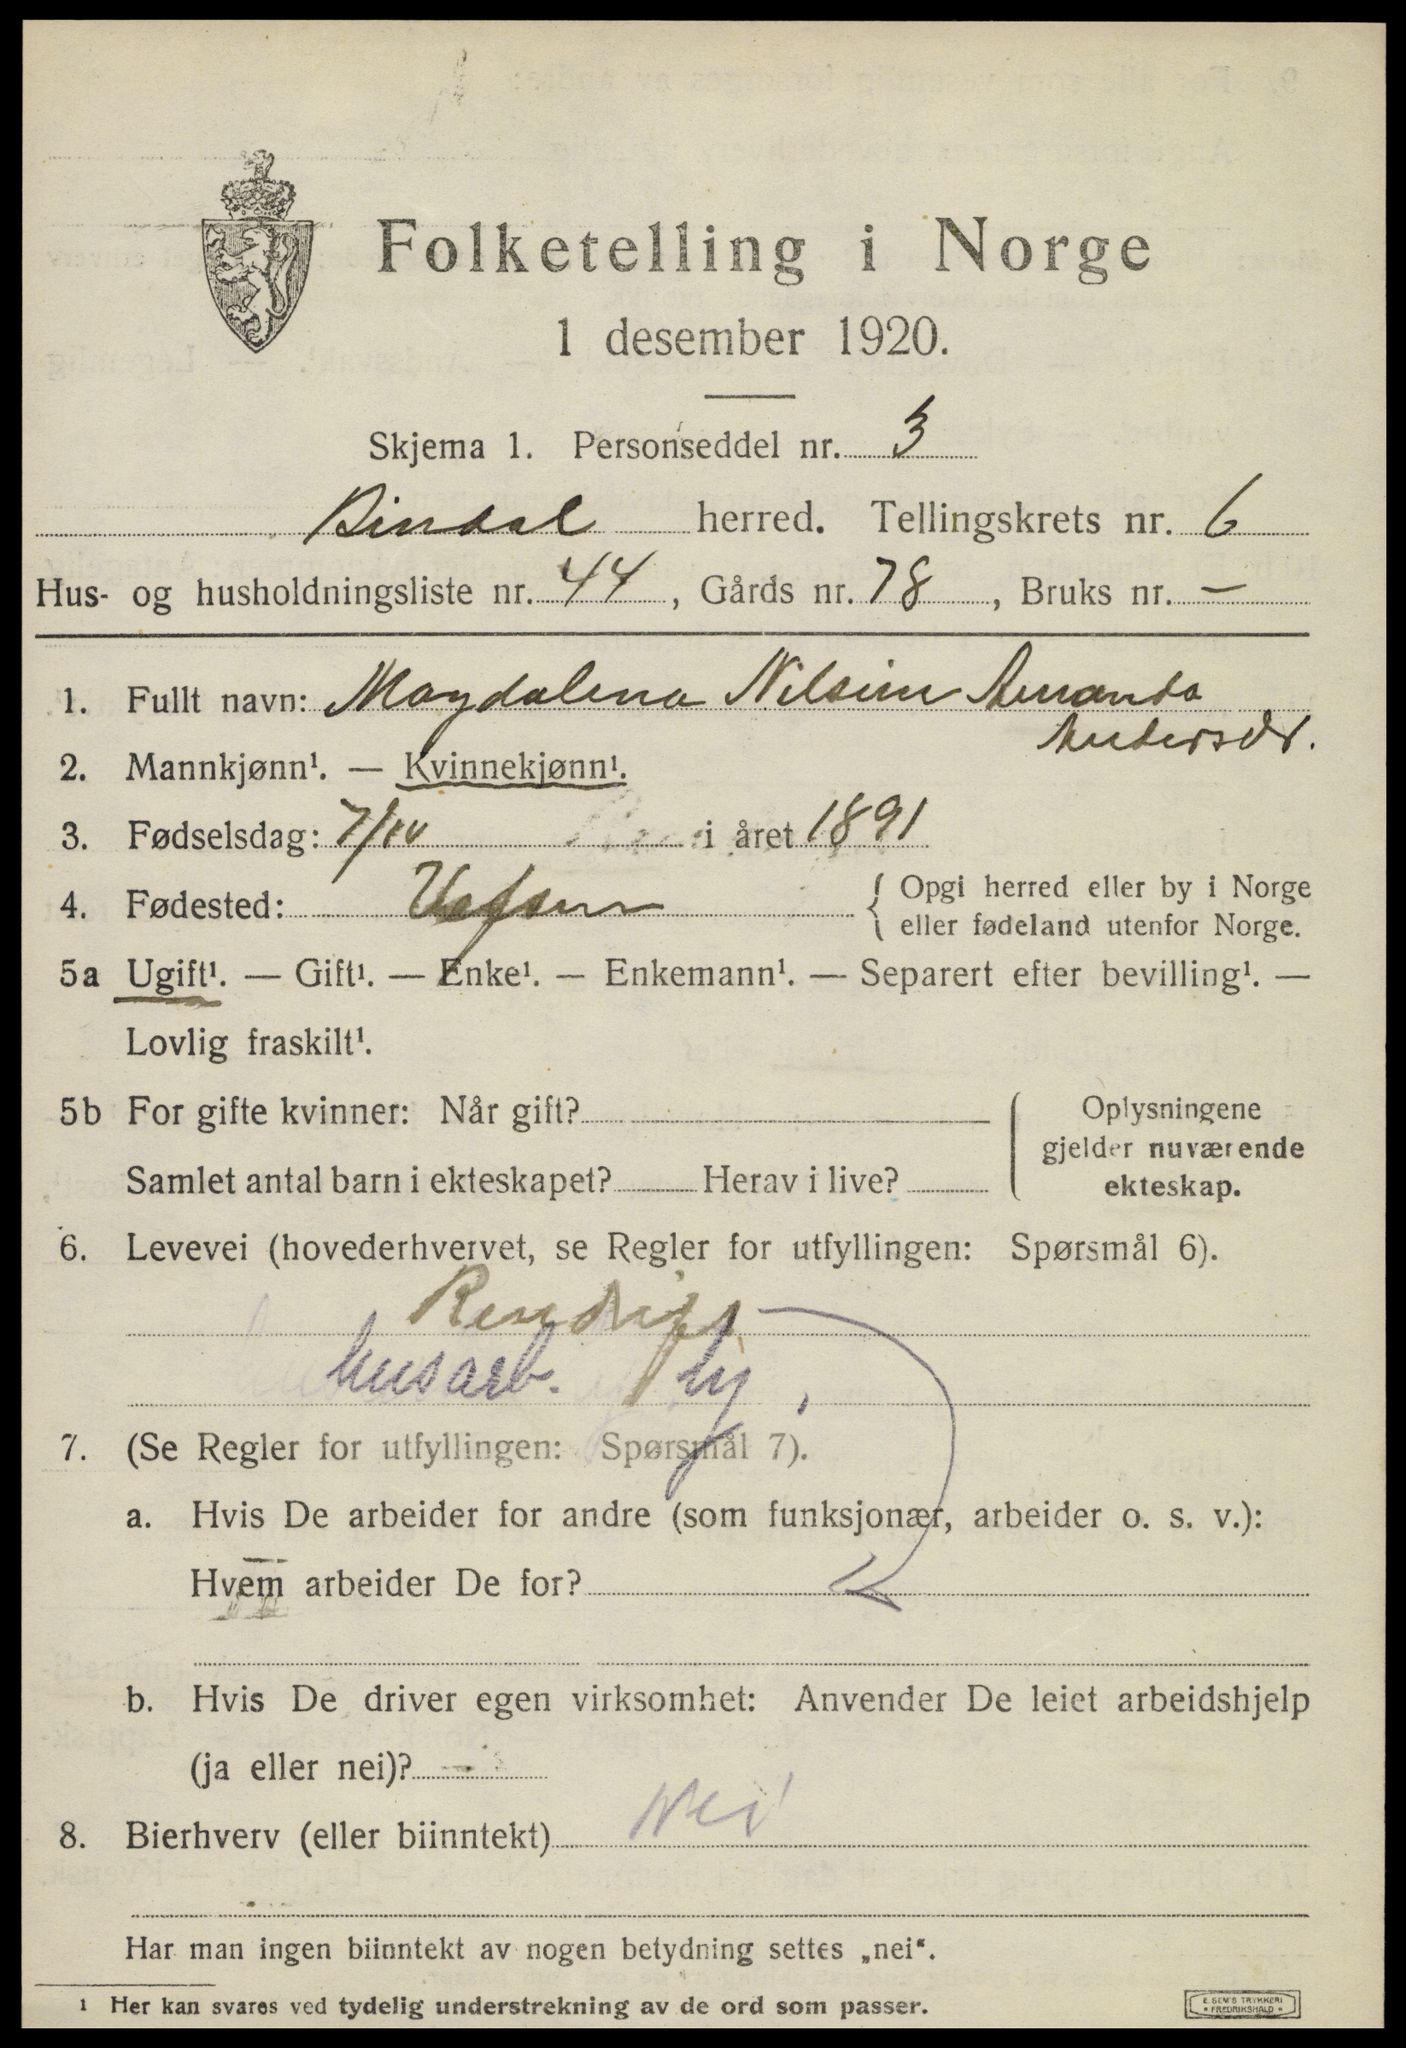 Folketelling i Norge
1 desember 1920.
Skjema 1. Personseddel nr. 3
Bindal herred. Tellingskrets nr. 6
Hus- og husholdningsliste nr. 44, Gårds nr. 78, Bruks nr. –
1. Fullt navn: Magdalena Nilsine Amanda
Andersdr.
2. Mannkjønn¹. — Kvinnekjønn¹.
3. Fødselsdag: 7/10 i året 1891
4. Fødested: Vefsen { Opgi herred eller by i Norge
eller fødeland utenfor Norge.
5a Ugift¹. — Gift¹. — Enke¹. — Enkemann¹. — Separert efter bevilling¹. —
Lovlig fraskilt¹.
5b For gifte kvinner: Når gift?
Samlet antal barn i ekteskapet? Herav i live?
Oplysningene
gjelder nuværende
ekteskap.
6. Levevei (hovederhvervet, se Regler for utfyllingen: Spørsmål 6).
Rendrift
husarb.
7. (Se Regler for utfyllingen: Spørsmål 7).
a. Hvis De arbeider for andre (som funksjonær, arbeider o. s. v.):
Hvem arbeider De for?
b. Hvis De driver egen virksomhet: Anvender De leiet arbeidshjelp
(ja eller nei)? –
8. Bierhverv (eller biinntekt) Nei
Har man ingen biinntekt av nogen betydning settes „nei“.
¹ Her kan svares ved tydelig understrekning av de ord som passer.
E. SEM'S TRYKKERI
* FREDRIKSHALD *